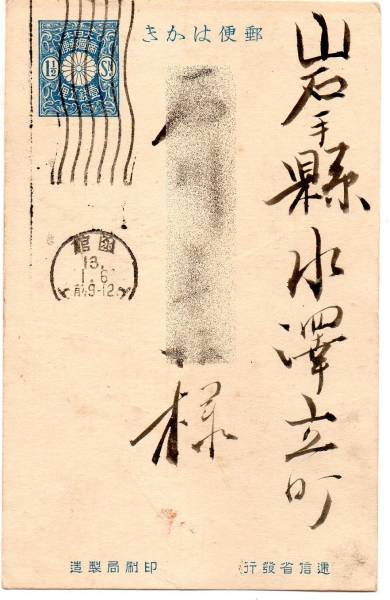 郵便はがき
1½ Sn
函館
13.
1.6
前9-12
岩手縣水澤立町
様
遞信省發行
印刷局製造